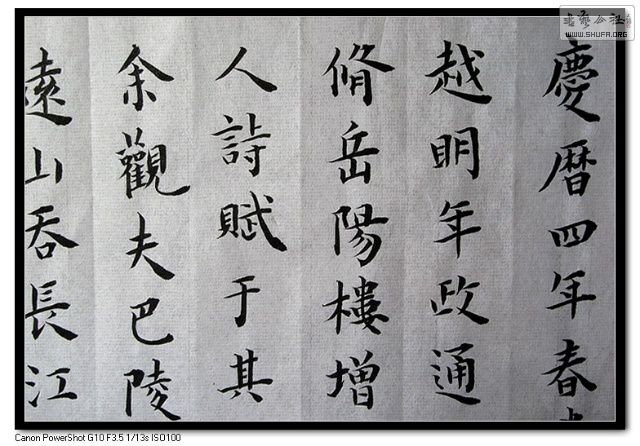 慶曆四年春
越明年政通
脩岳陽樓增
人詩賦于其
余觀夫巴陵
遠山吞長江
書藝公社
WWW.SHUFA.ORG
Canon PowerShot G10 F3.5 1/13s ISO100